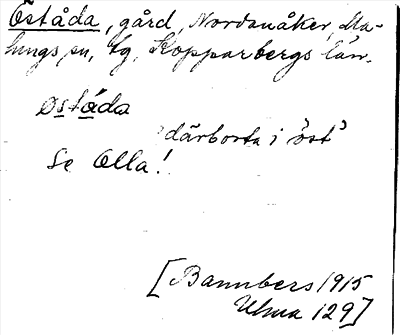 Öståda, gård, Nordanåker, Ma-
lungs sn, tg, Kopparbergs län.
östáda
'därborta i öst'
Se Olla!
[Bannbers 1915
Ulma 129]